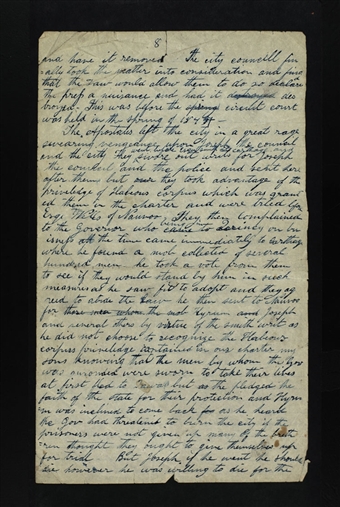 8
and have it removed The city council fin
ally took the matter into consideration and find
that the Law would allow them to do so declare
the press a nuisance and had it des
troyed. This was before the spring circuit court
was held in the spring of 1844
The Apostates left the city in a great rage
swearing vengeance upon Joseph the council
and the city they swore out writs for Joseph
the council and the police and sent here
after them but they took advantage of the
priviledge of Habeas Corpus which was grant
ed them in the charter and were tried by
Nauvoo, They then complained
to the Governor who being on bu
isness at the time came immediately to Carthage
where he found a mob collection of several
hundred men he took a vote from them
to see if they would stand by him in such
measures as he saw fit to adopt and they ag
reed to abide the Law he then sent to Nauvoo
for Hyrum and Joseph
and several others by virtue of the writ as
he did not choose to recognize the Habeas
corpus priviledge contained in our charter
knowing that the men by whom the Gov
was surrounded were sworn to take their lives
at first fled to but as the pledged the
faith of the State for their protection and Hyrum
was inclined to come back for as he heard
the Gov had threatened to burn the city if the
prisoners were not given up many of the breth
ren thought they ought to give themselves up
for trial But Joseph if he went he should
die however he was willing to die for the